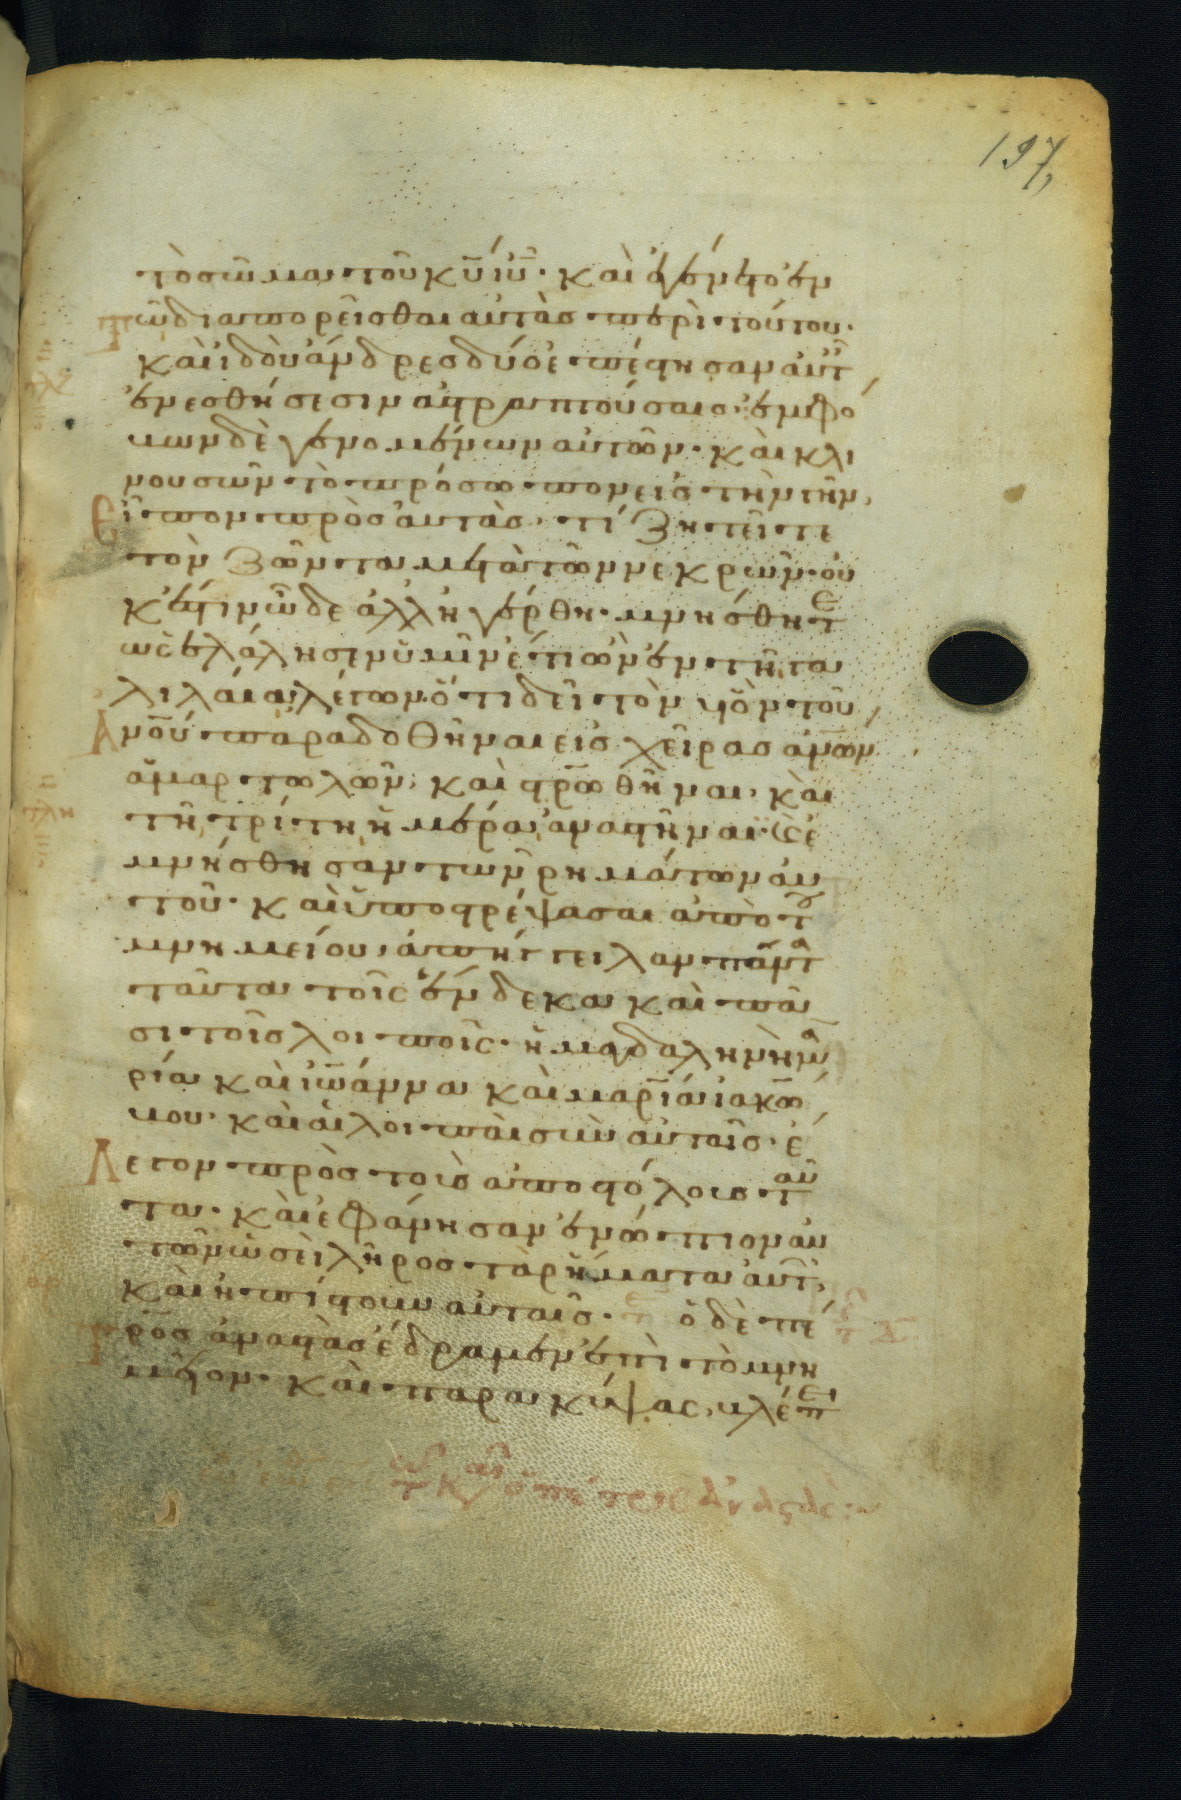 197
τὸ σῶμα τοῦ κ̅υ̅ ι̅υ̅· καὶ ἐγένετο ἐν
τῶ διαπορεῖσθαι αὐτὰσ περὶ τούτου·
καὶ ἰδοὺ ἄνδρεσ δύο ἐπέστησαν αὐτ
ἐν ἐσθήσεσιν ἀστραπτούσαισ· ἐμφό
βων δὲ γενομένων αὐτῶν· καὶ κλι
νουσῶν τὸ πρόσωπον εἰσ τὴν γῆν,
Εἶπον πρὸσ αὐτάσ· τί ζητεῖτε
τὸν ζῶντα μετὰ τῶν νεκρῶν· οὐ
κ ἔστιν ὧδε ἀλλ ἠγέρθη· μνήσθητε
ὡσ ἐλάλησεν ὑμῖν ἔτι ὢν ἐν τῆ γα
λιλαία λέγων· ὅτι δεῖ τὸν υ̅ν̅ τοῦ
Α̅ν̅ο̅υ̅ παραδοθῆναι εἰσ χεῖρασ α̅ν̅ω̅ν̅
ἁμαρτωλῶν· καὶ σ̅ρ̅ω̅θῆναι· καὶ
τῆ τρίτη ἡμέρα ἀναστῆναι· καὶ ἐ
μνήσθησαν τῶν ῥημάτων αὐ
τοῦ· καὶ ὑποστρέψασαι ἀπὸ τοῦ
μνημείου, ἀπήγγειλαν πάντα
ταῦτα τοῖσ ἕνδεκα καὶ πᾶ
σι τοῖσ λοιποῖσ· ἦν δὲ ἡ μαγδαληνὴ μα
ρία καὶ ἰωάννα καὶ μαρία ἰακώ
βου· καὶ αἱ λοιπαὶ σὺν αὐταῖσ· ἔ
Λεγον πρὸσ τοὺσ ἀποστόλουσ ταῦ
τα· καὶ ἐφάνησαν ἐνώπιον αὐ
τῶν ὡσεὶ λῆροσ τὰ ῥήματα αὐτ,
καὶ ἠπίστουν αὐταῖσ· ὁ δὲ πέ
τροσ ἀναστὰσ ἔδραμεν ἐπὶ τὸ μνη
μεῖον· καὶ παρακύψασ βλέπει
ὁ πέτρος ἀναστὰς